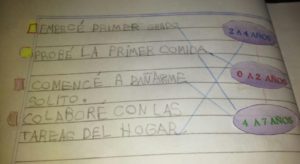 EMPECÉ PRIMER GRADO.
2 A 4 AÑOS
PROBÉ LA PRIMER COMIDA.
0 A 2 AÑOS
COMENCÉ A BAÑARME
SOLITO.
COLABORÉ CON LAS
TAREAS DEL HOGAR.
4 A 7 AÑOS